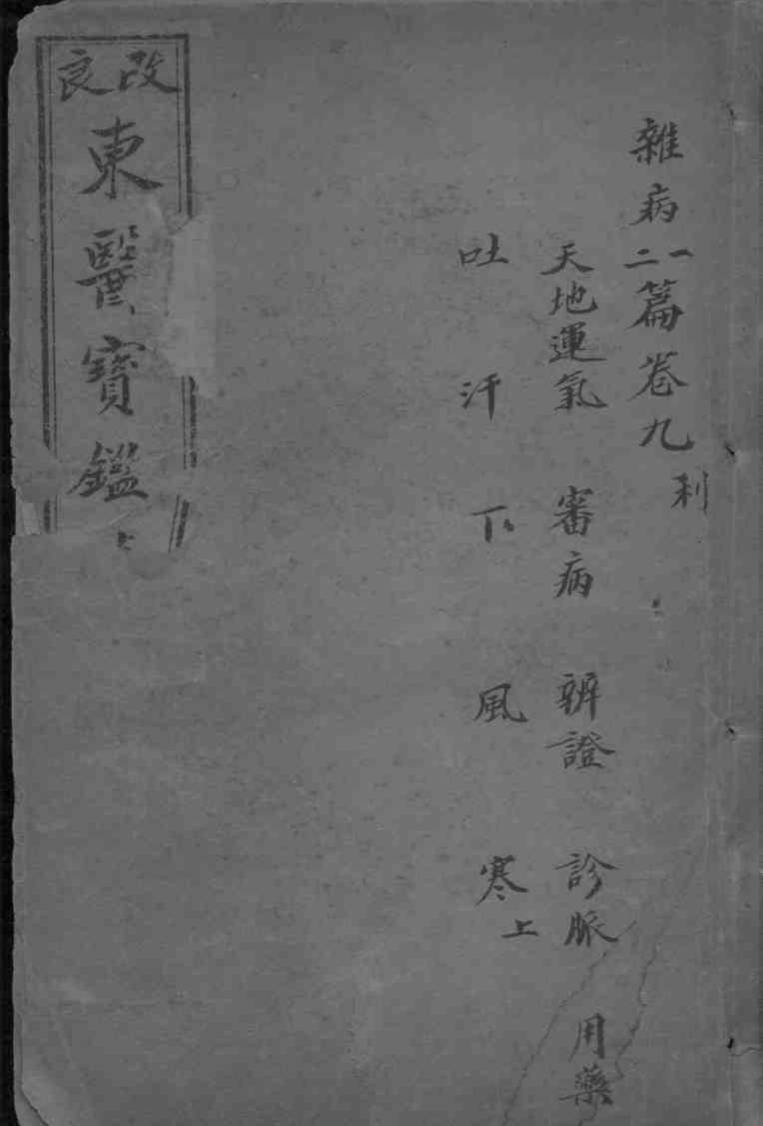 雜病一二篇卷九
利
天地運氣 審病 辨證 診脈 用藥
吐 汗 下 風 寒上
改良
東醫寶鑑